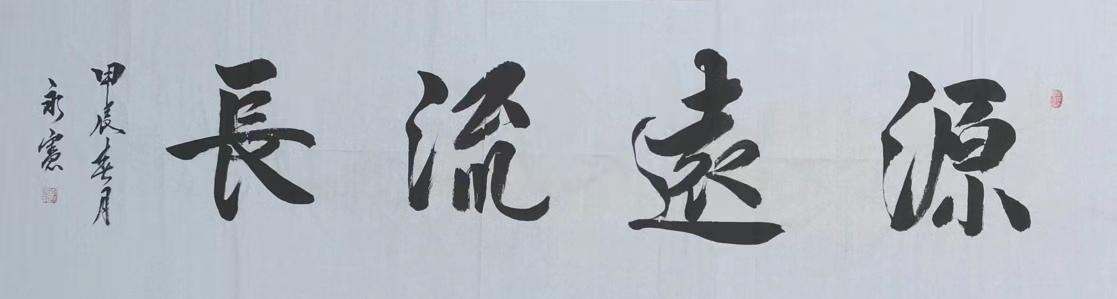 源遠流長
甲辰春月
永憲